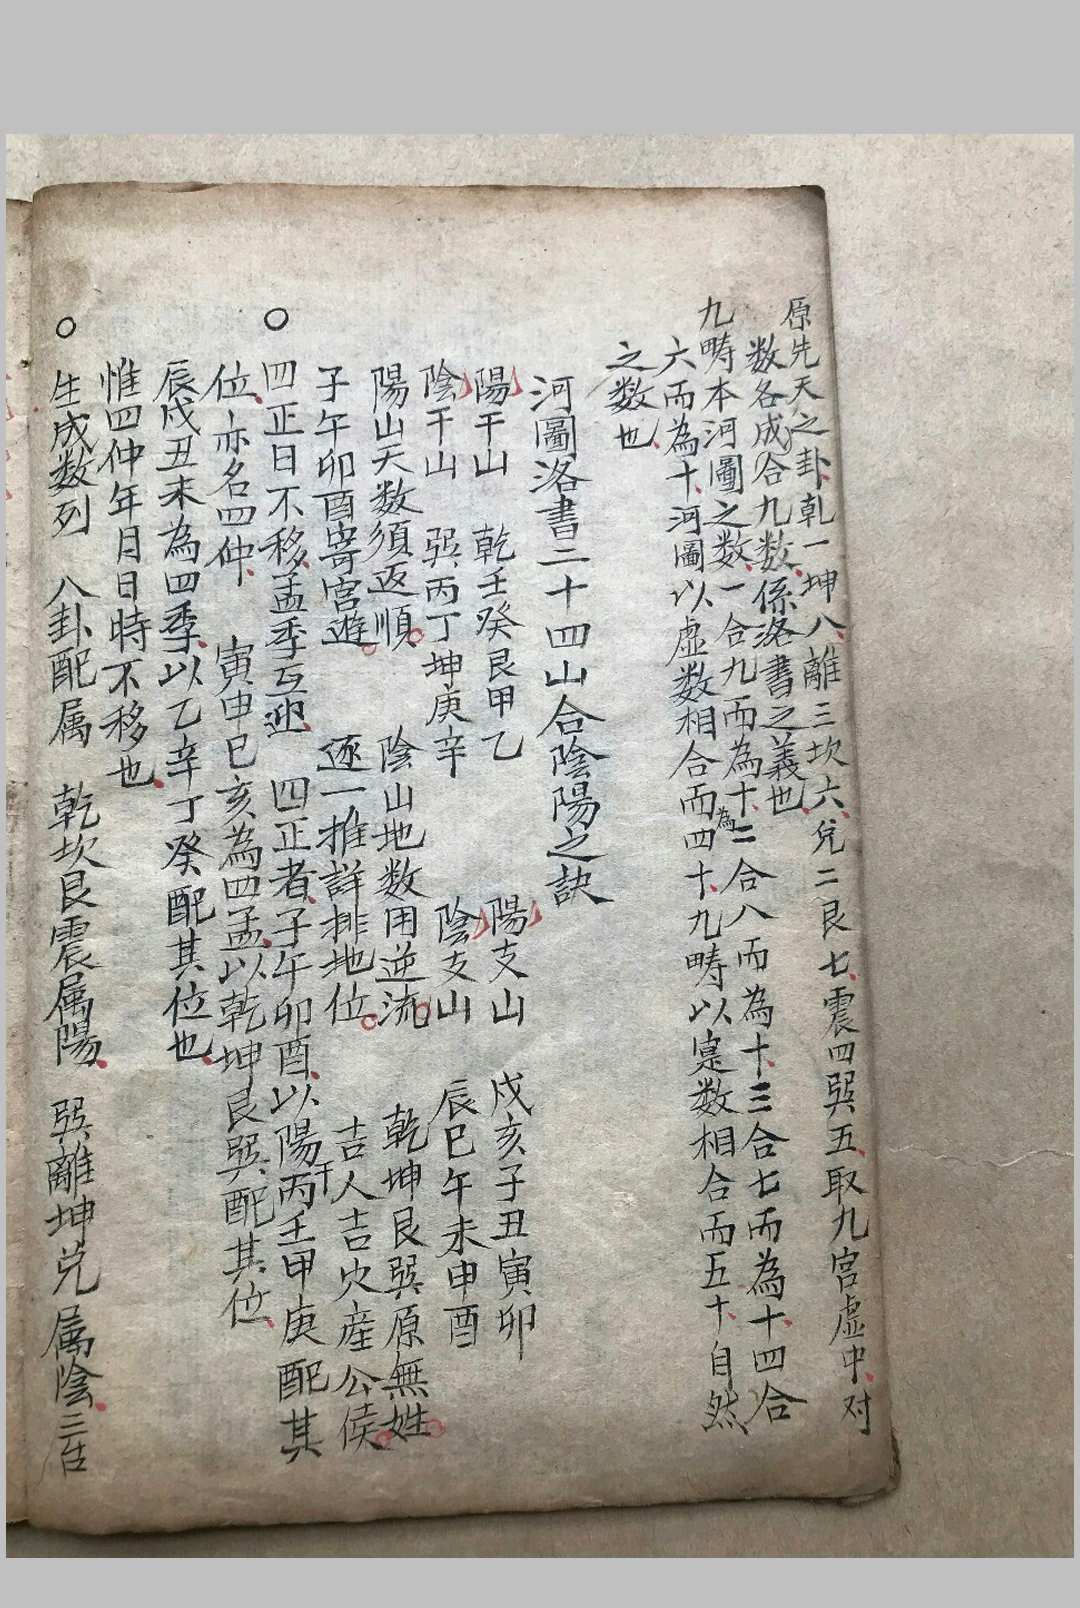 原先天之卦乾一坤八離三坎六兌二艮七震四巽五取九宮虛中对
数各成合九数係洛書之義也
九疇本河圖之数一合九而為十二合八而為十三合七而為十四合
為
六而為十河圖以虛数相合而四十九疇以寔数相合而五十自然
之数也
河圖洛書二十四山合陰陽之訣
陽干山 乾壬癸艮甲乙 陽支山 戌亥子丑寅卯
陰干山 巽丙丁坤庚辛 陰支山 辰巳午未申酉
陽山天数須返順 陰山地数用逆流 乾坤艮巽原無姓
子午卯酉寄宮遊 逐一推詳排地位 吉人吉穴産公侯
○ 四正日不移孟季互迎 四正者子午卯酉以陽干丙壬甲庚配其
位亦名四仲 寅申巳亥為四孟以乾坤艮巽配其位
辰戌丑未為四季以乙辛丁癸配其位也
惟四仲年月日時不移也
○ 生成数列 八卦配属 乾坎艮震属陽 巽離坤兑属陰三